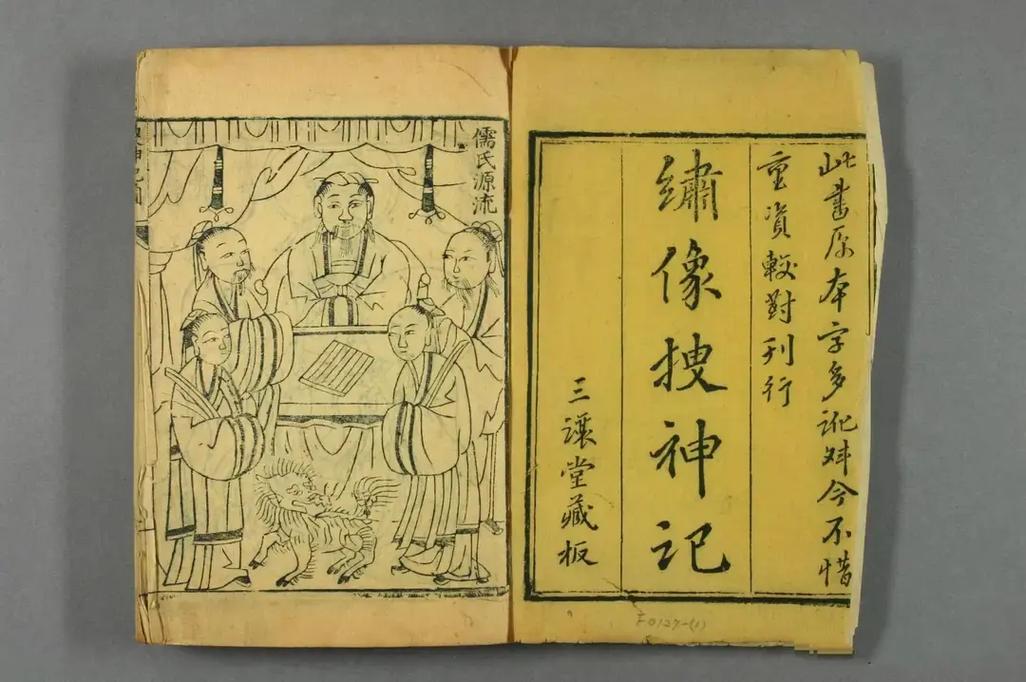 此書原本字多訛舛今不惜
重資較對刊行
繡像搜神記
三讓堂藏板
儒氏源流
F0127-(1)